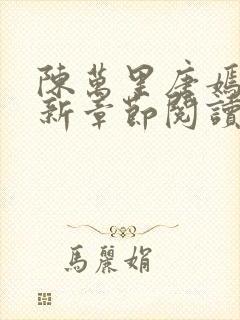 陳萬里唐嫣
新章節閱讀
馬麗娟